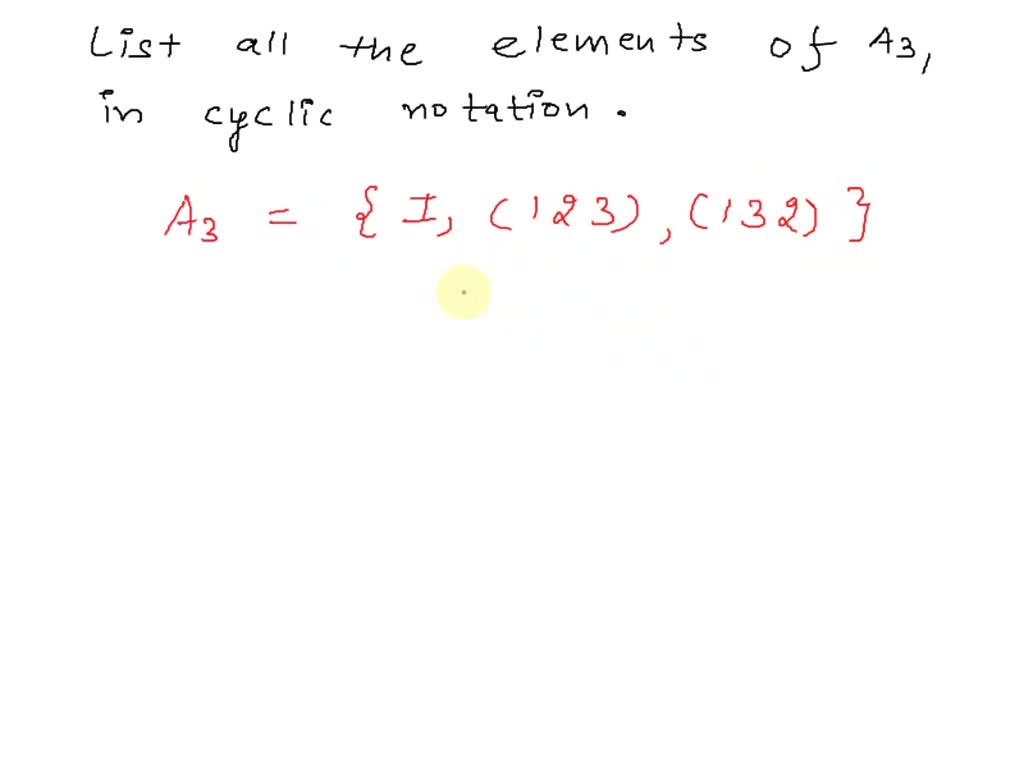 List all the elements of A3,
in cyclic notation.
A3 = { I, (123), (132) }